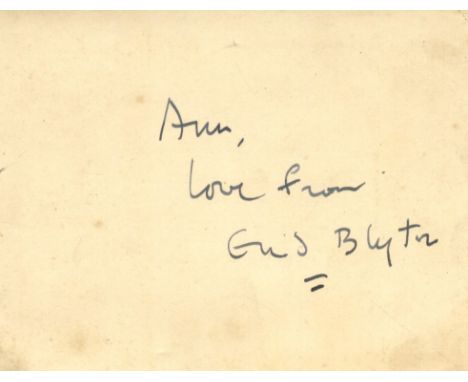 Ann,
love from
Enid Blyton